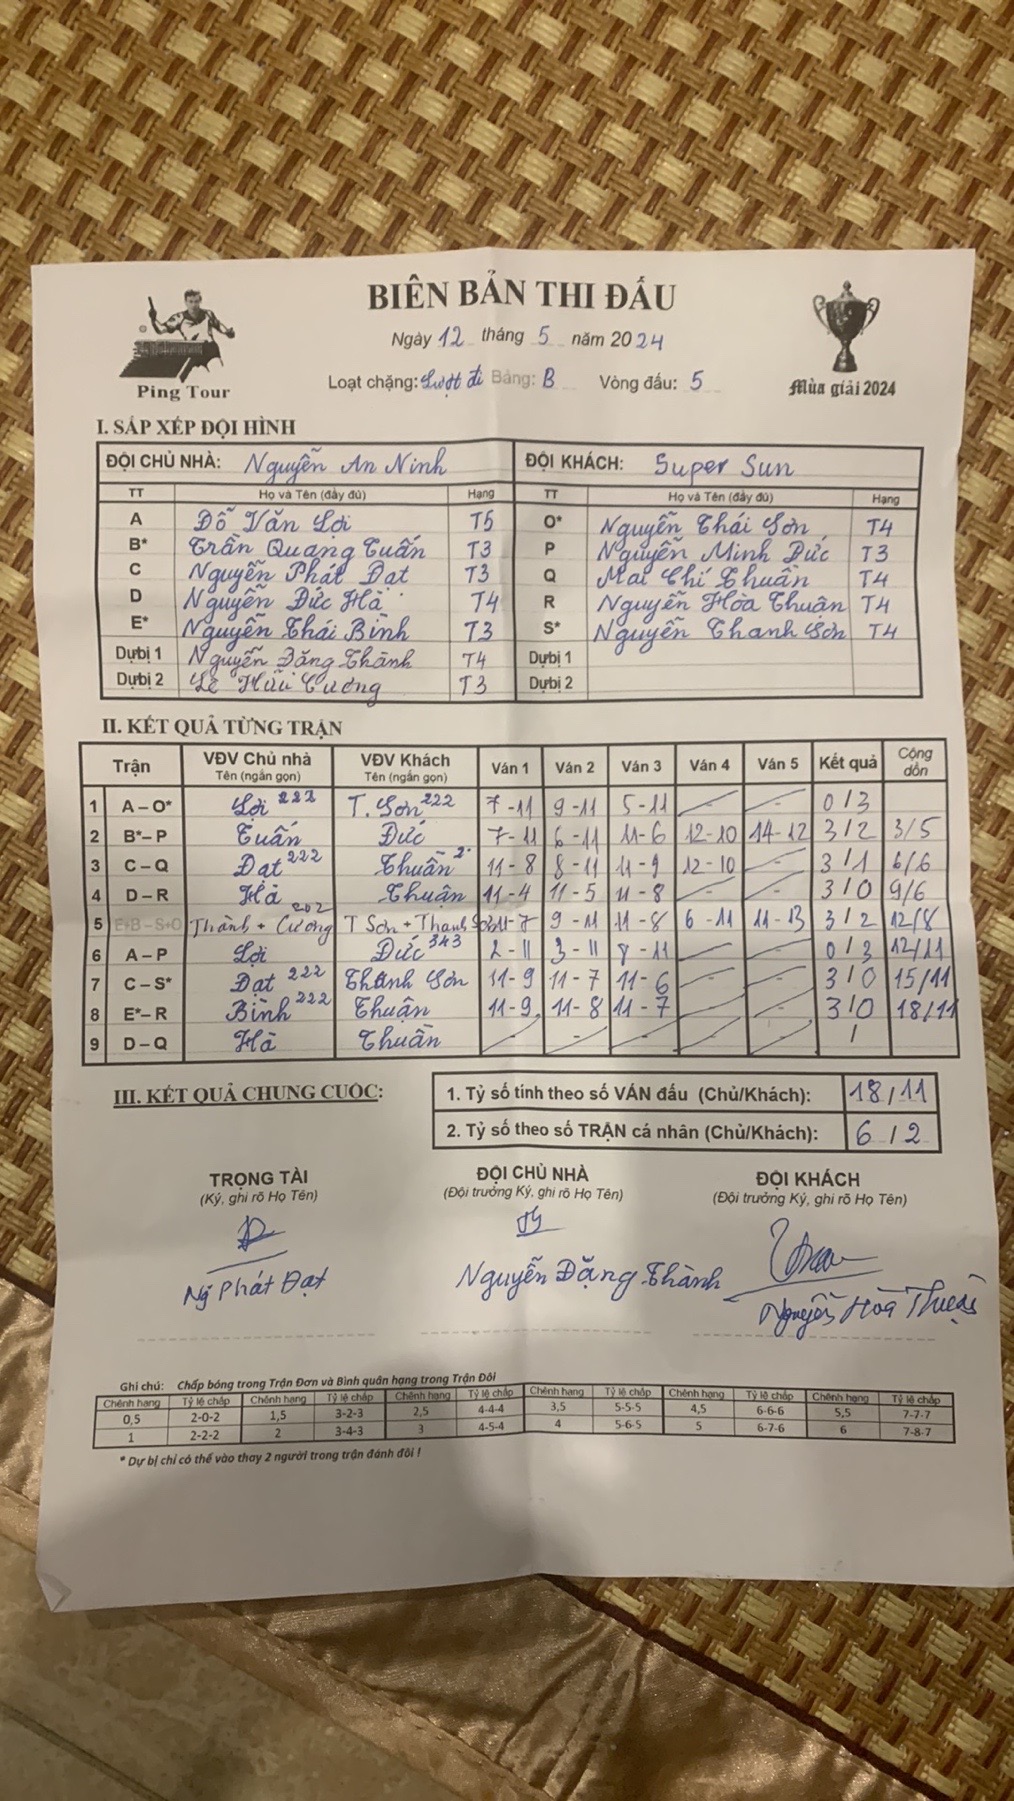 BIÊN BẢN THI ĐẤU
Ngày 12 tháng 5 năm 2024
Loạt chặng: Lượt đi Bảng: B Vòng đấu: 5
Ping Tour
Mùa giải 2024
I. SẮP XẾP ĐỘI HÌNH
ĐỘI CHỦ NHÀ: Nguyễn An Ninh ĐỘI KHÁCH: Super Sun
TT Họ và Tên (đầy đủ) Hạng TT Họ và Tên (đầy đủ) Hạng
A Đỗ Văn Lợi T5 O* Nguyễn Thái Sơn T4
B* Trần Quang Tuấn T3 P Nguyễn Minh Đức T3
C Nguyễn Phát Đạt T3 Q Mai Chí Thuần T4
D Nguyễn Đức Hà T4 R Nguyễn Hòa Thuận T4
E* Nguyễn Thái Bình T3 S* Nguyễn Thanh Sơn T4
Dự bị 1 Nguyễn Đăng Thành T4 Dự bị 1
Dự bị 2 Lê Hữu Cương T3 Dự bị 2
II. KẾT QUẢ TỪNG TRẬN
Trận VĐV Chủ nhà Tên (ngắn gọn) VĐV Khách Tên (ngắn gọn) Ván 1 Ván 2 Ván 3 Ván 4 Ván 5 Kết quả Cộng dồn
1 A – O* Lợi 223 T. Sơn 222 7-11 9-11 5-11 - - 0/3
2 B*– P Tuấn Đức 7-11 6-11 11-6 12-10 14-12 3/2 3/5
3 C – Q Đạt 222 Thuần 2. 11-8 8-11 11-9 12-10 - 3/1 6/6
4 D – R Hà Thuận 11-4 11-5 11-8 - - 3/0 9/6
5 E+B – S+O Thành + Cương 202 T Sơn + Thanh Sơn 11-7 9-11 11-8 6-11 11-13 3/2 12/8
6 A – P Lợi Đức 343 2-11 3-11 8-11 - - 0/3 12/11
7 C – S* Đạt 222 Thanh Sơn 11-9 11-7 11-6 - - 3/0 15/11
8 E*– R Bình 222 Thuận 11-9 11-8 11-7 - - 3/0 18/11
9 D – Q Hà Thuần - - - - - /
III. KẾT QUẢ CHUNG CUỘC:
1. Tỷ số tính theo số VÁN đấu (Chủ/Khách): 18/11
2. Tỷ số theo số TRẬN cá nhân (Chủ/Khách): 6/2
TRỌNG TÀI ĐỘI CHỦ NHÀ ĐỘI KHÁCH
(Ký, ghi rõ Họ Tên) (Đội trưởng Ký, ghi rõ Họ Tên) (Đội trưởng Ký, ghi rõ Họ Tên)
Ng Phát Đạt Nguyễn Đặng Thành Nguyễn Hòa Thuận
Ghi chú: Chấp bóng trong Trận Đơn và Bình quân hạng trong Trận Đôi
Chênh hạng Tỷ lệ chấp Chênh hạng Tỷ lệ chấp Chênh hạng Tỷ lệ chấp Chênh hạng Tỷ lệ chấp Chênh hạng Tỷ lệ chấp Chênh hạng Tỷ lệ chấp
0,5 2-0-2 1,5 3-2-3 2,5 4-4-4 3,5 5-5-5 4,5 6-6-6 5,5 7-7-7
1 2-2-2 2 3-4-3 3 4-5-4 4 5-6-5 5 6-7-6 6 7-8-7
* Dự bị chỉ có thể vào thay 2 người trong trận đánh đôi !